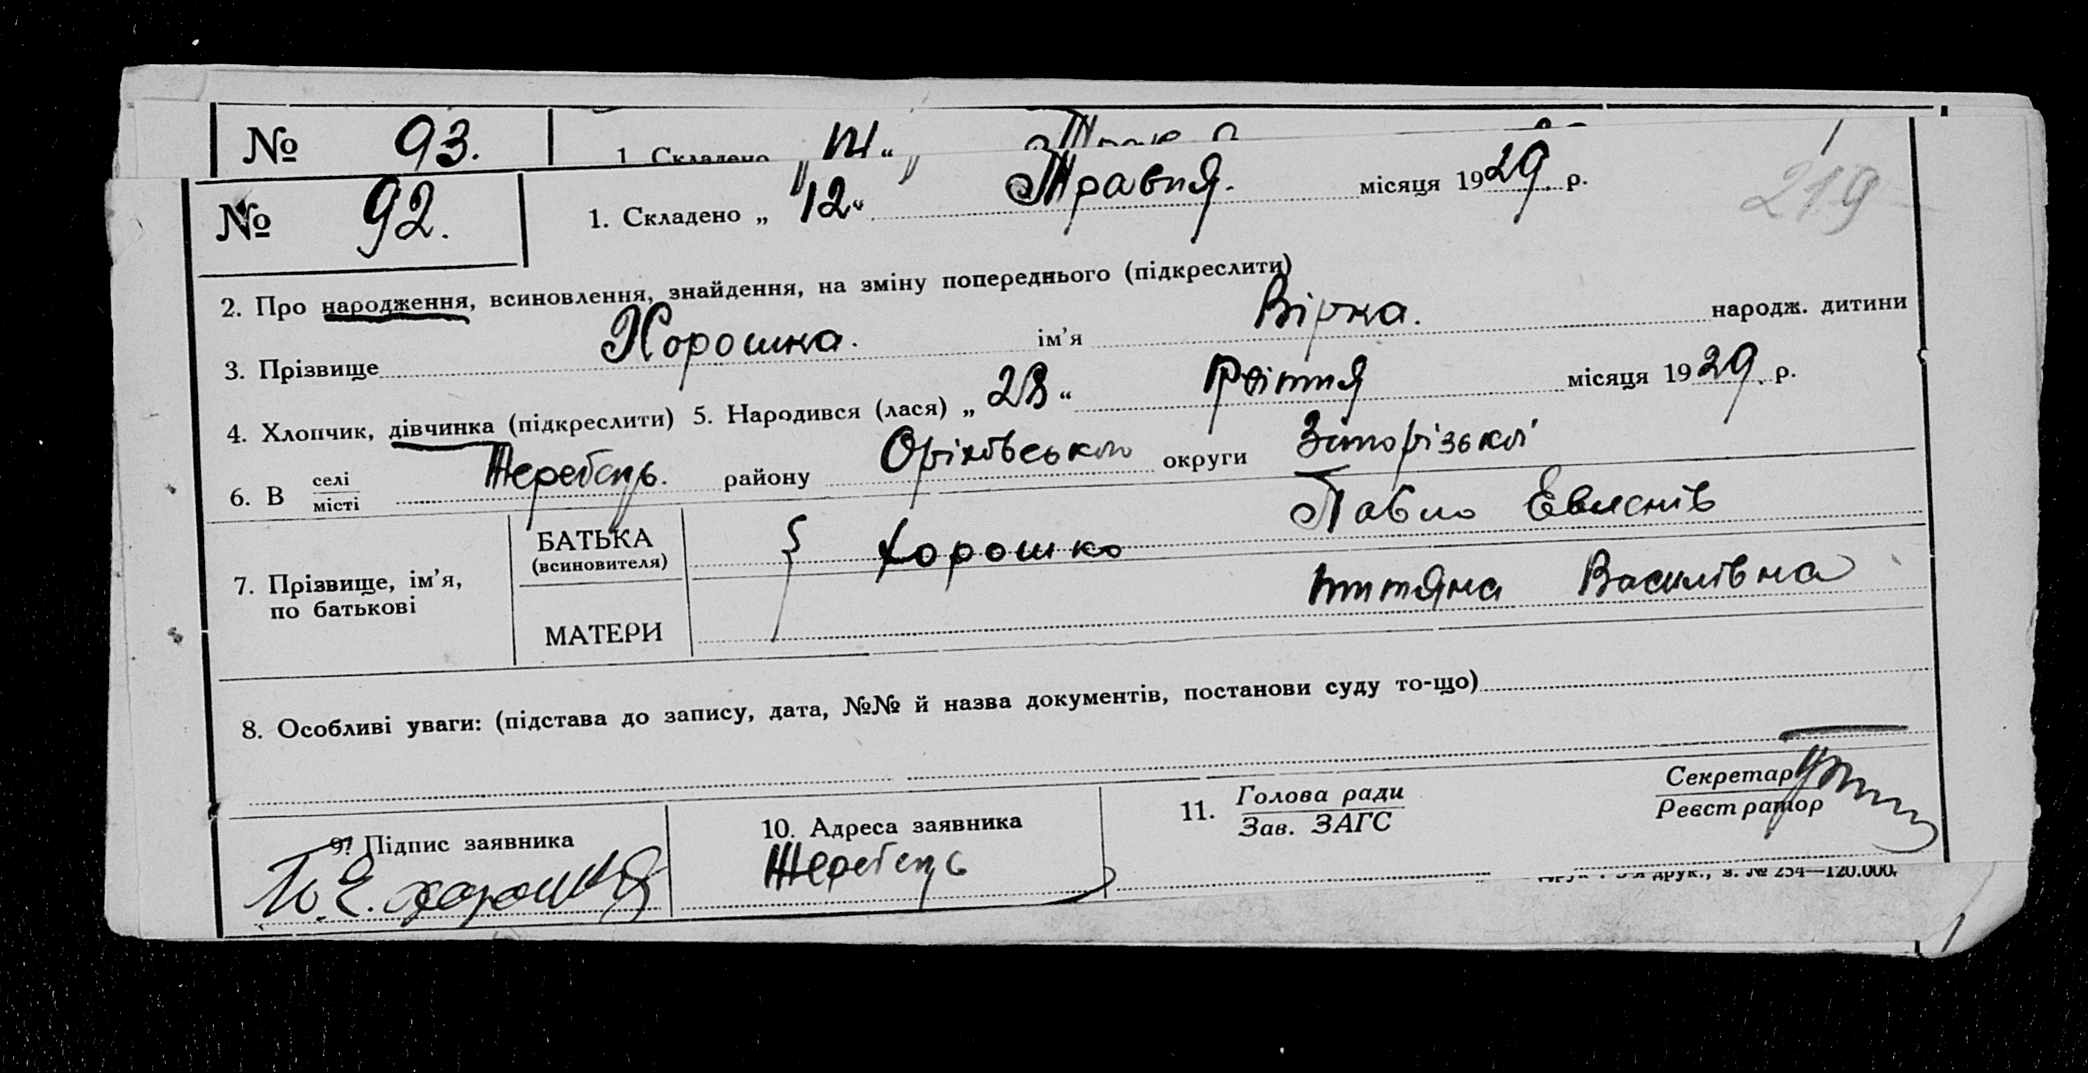 № 93.
1. Складено
№ 92. 1. Складено „ 12 “ Травня. місяця 1929 р.
219
2. Про народження, всиновлення, знайдення, на зміну попереднього (підкреслити)
3. Прізвище Хорошка. ім’я Вірка. народж. дитини
4. Хлопчик, дівчинка (підкреслити) 5. Народився (лася) „ 23 “ місяця 1929 р.
6. В селі місті Жеребець. району Оріхівського округи Запорізької
7. Прізвище, ім’я, по батькові
БАТЬКА (всиновителя) Хорошко Павло
МАТЕРИ Титяна Василівна
8. Особливі уваги: (підстава до запису, дата, №№ й назва документів, постанови суду то-що)
9. Підпис заявника
П. Є. Хорошко
10. Адреса заявника
Жеребець
11. Голова ради
Зав. ЗАГС
Секретар
Реєстратор
друк., з. № 254—120.000.